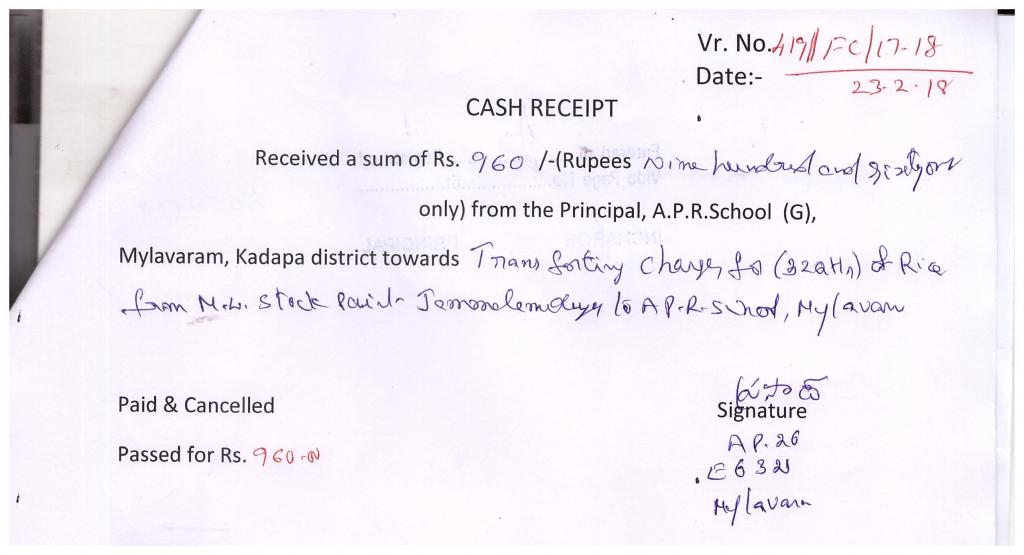 Vr. No. 419/FC/17-18
Date:- 23-2-18
CASH RECEIPT
Received a sum of Rs. 960 /-(Rupees Nine hundred and sixty only
only) from the Principal, A.P.R.School (G),
Mylavaram, Kadapa district towards Transporting charges for (32 Qtls) of Rice
from M.L. Stock Point to A.P.R. School, Mylavaram
Paid & Cancelled
ప్రసాద్
Signature
Passed for Rs. 960-00
AP.26
Mylavaram